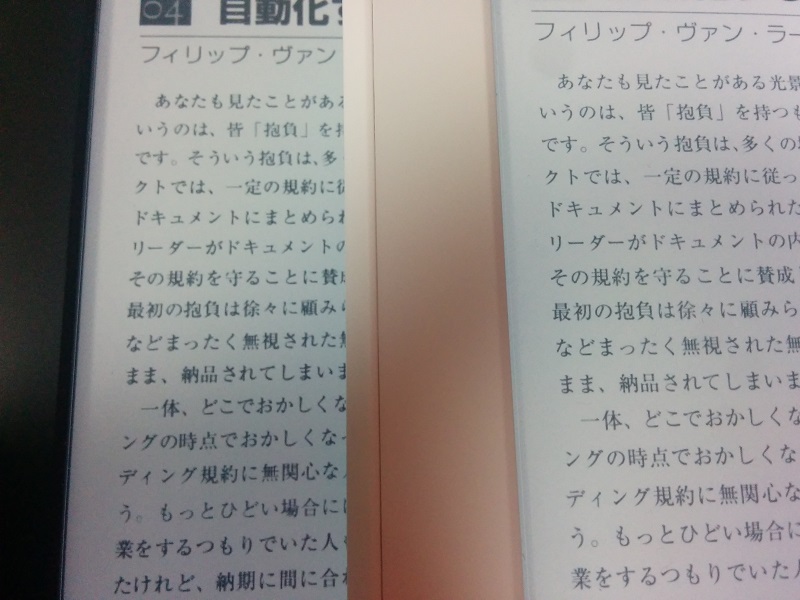 04 自動化
フィリップ・ヴァン
あなたも見たことがある
いうのは、皆「抱負」を持
です。そういう抱負は、多
クトでは、一定の規約に従
ドキュメントにまとめられ
リーダーがドキュメントの
その規約を守ることに賛成
最初の抱負は徐々に顧みら
などまったく無視された無
まま、納品されてしまいま
一体、どこでおかしくな
ングの時点でおかしくなっ
ディング規約に無関心な
う。もっとひどい場合に
業をするつもりでいた人
たけれど、納期に間に合わ
フィリップ・ヴァン・ラー
あなたも見たことがある光景
いうのは、皆「抱負」を持つも
です。そういう抱負は、多くの
クトでは、一定の規約に従っ
ドキュメントにまとめられた
リーダーがドキュメントの内
その規約を守ることに賛成
最初の抱負は徐々に顧みら
などまったく無視された無
まま、納品されてしまいま
一体、どこでおかしくな
ングの時点でおかしくな
ディング規約に無関心な
う。もっとひどい場合に
業をするつもりでいた人